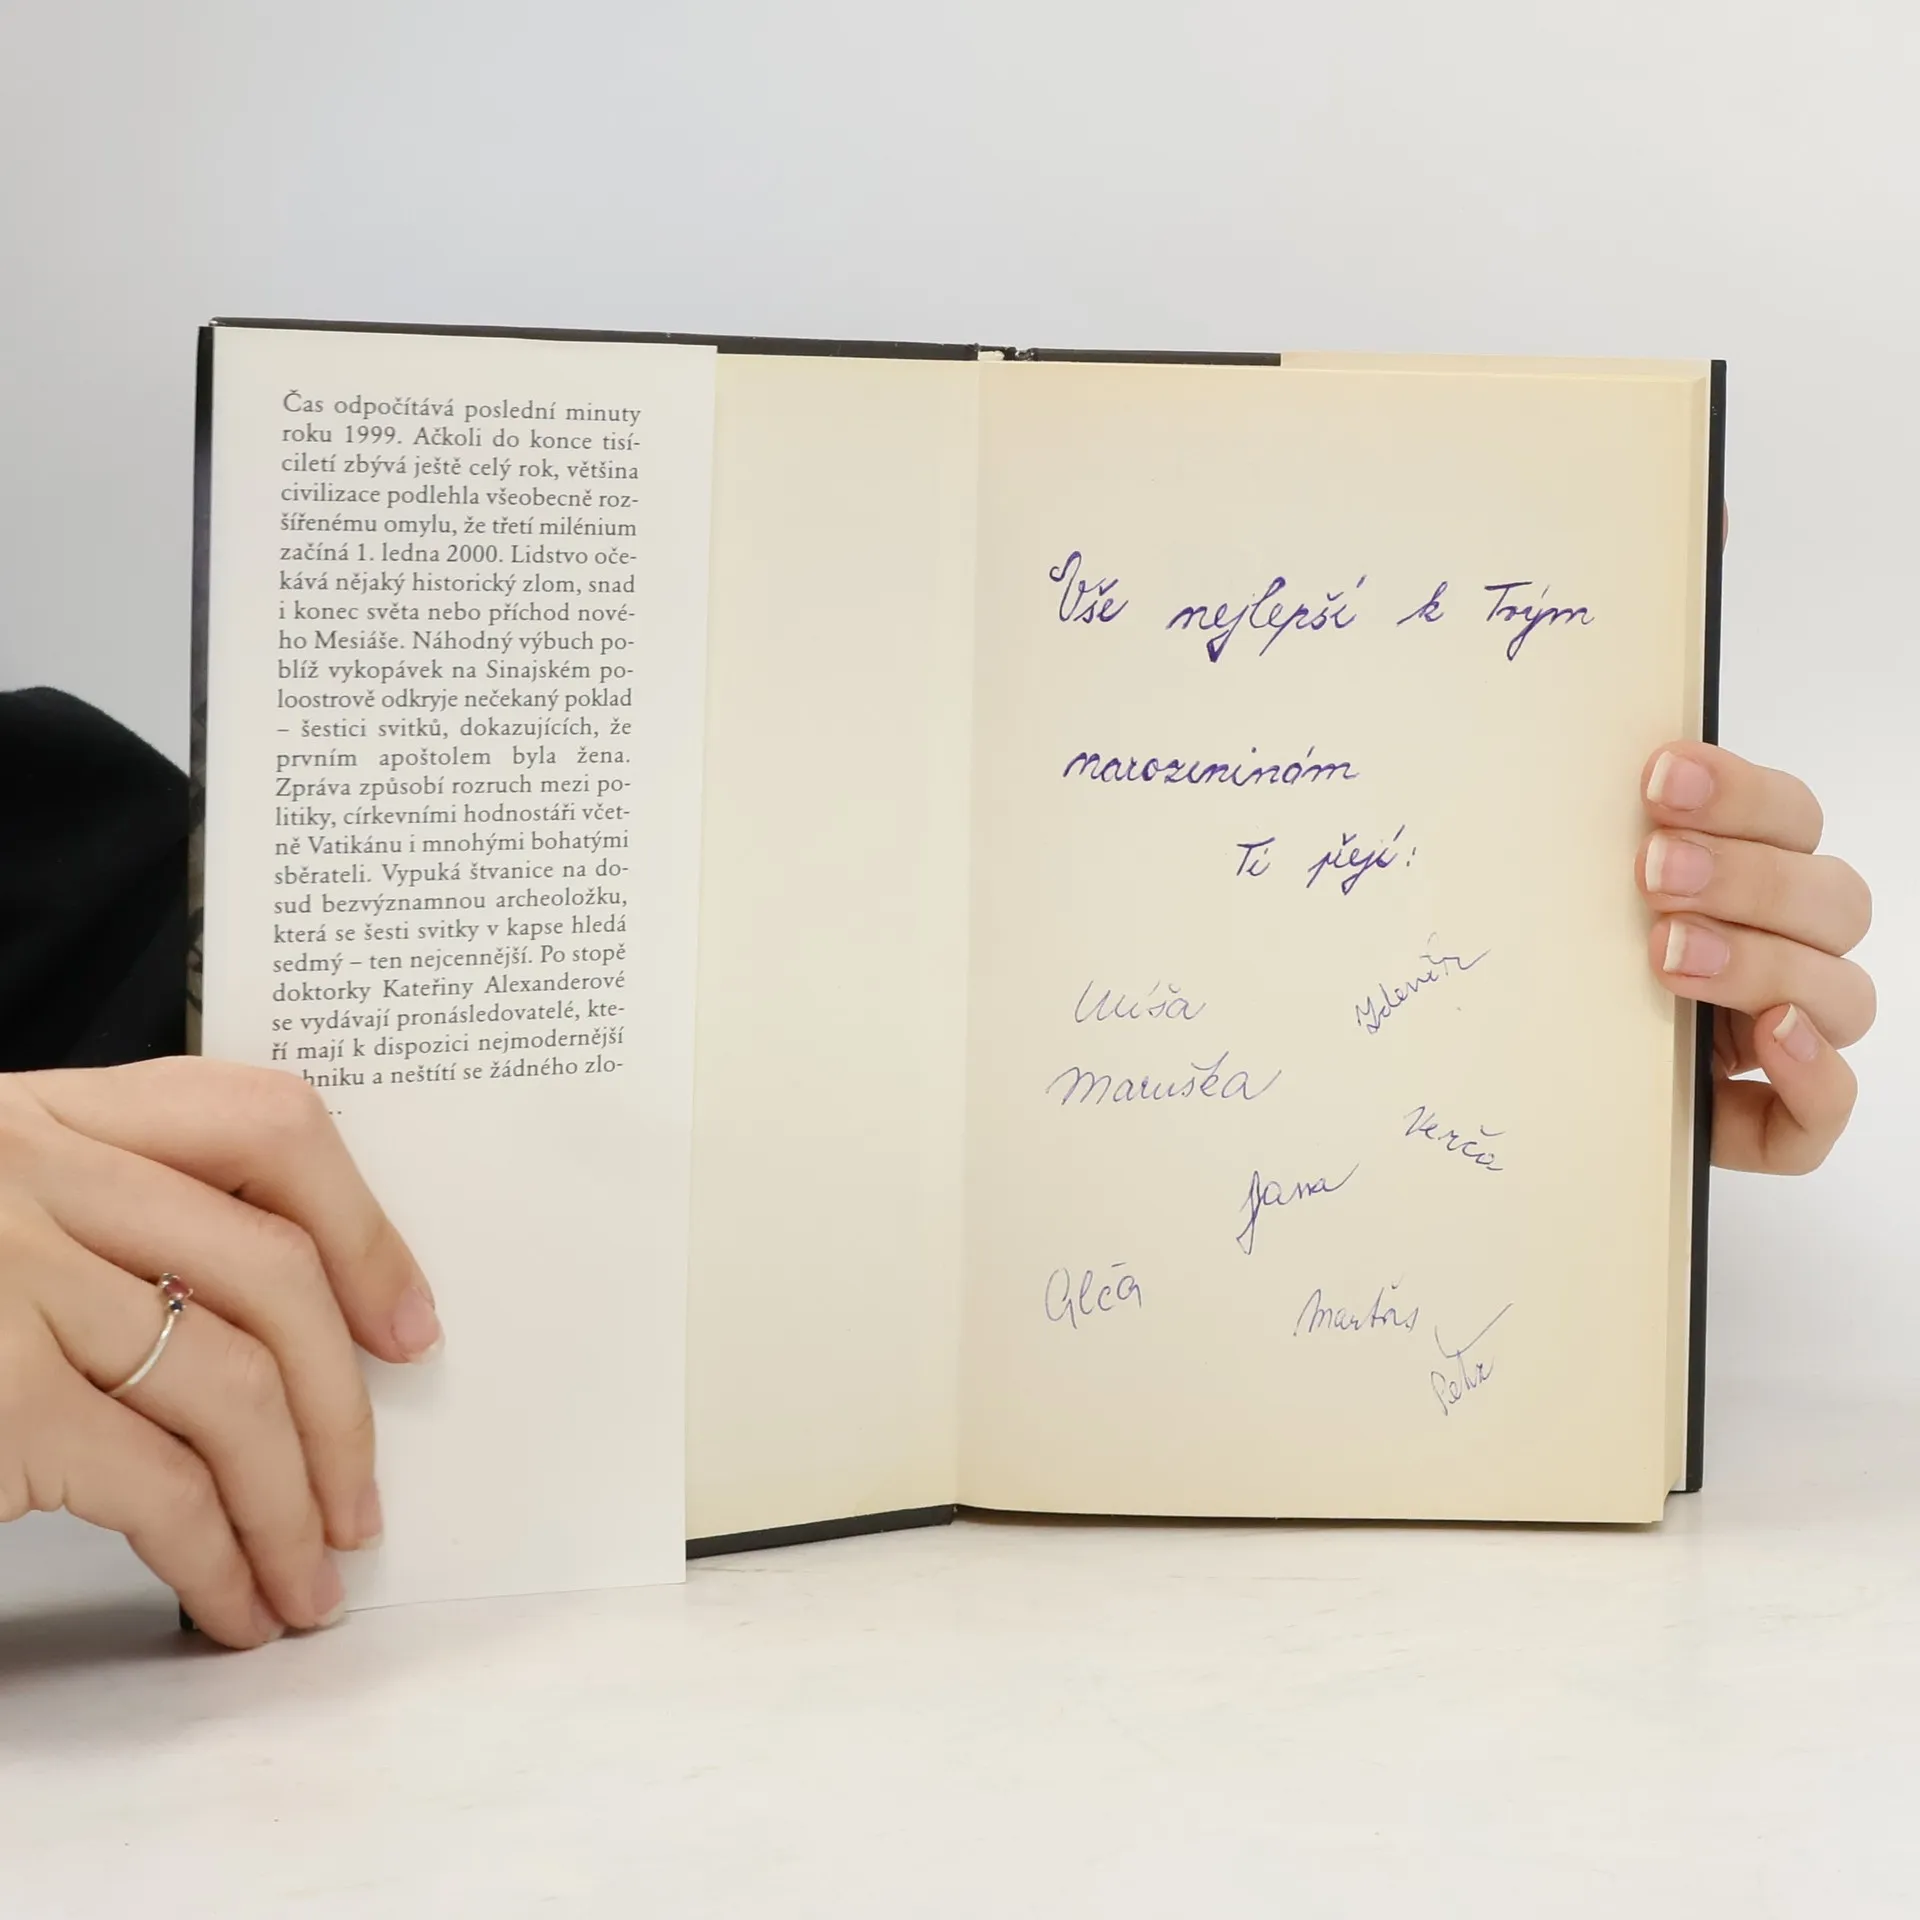 Čas odpočítává poslední minuty
roku 1999. Ačkoli do konce tisí-
ciletí zbývá ještě celý rok, většina
civilizace podlehla všeobecně roz-
šířenému omylu, že třetí milénium
začíná 1. ledna 2000. Lidstvo oče-
kává nějaký historický zlom, snad
i konec světa nebo příchod nové-
ho Mesiáše. Náhodný výbuch po-
blíž vykopávek na Sinajském po-
loostrově odkryje nečekaný poklad
– šestici svitků, dokazujících, že
prvním apoštolem byla žena.
Zpráva způsobí rozruch mezi po-
litiky, církevními hodnostáři včet-
ně Vatikánu i mnohými bohatými
sběrateli. Vypuká štvanice na do-
sud bezvýznamnou archeoložku,
která se šesti svitky v kapse hledá
sedmý – ten nejcennější. Po stopě
doktorky Kateřiny Alexanderové
se vydávají pronásledovatelé, kte-
ří mají k dispozici nejmodernější
hniku a neštítí se žádného zlo-
..
Vše nejlepší k Tvým
narozeninám
Ti přejí:
Míša
Zdeněk
Maruška
Verča
Jana
Alča
Martin
Petr